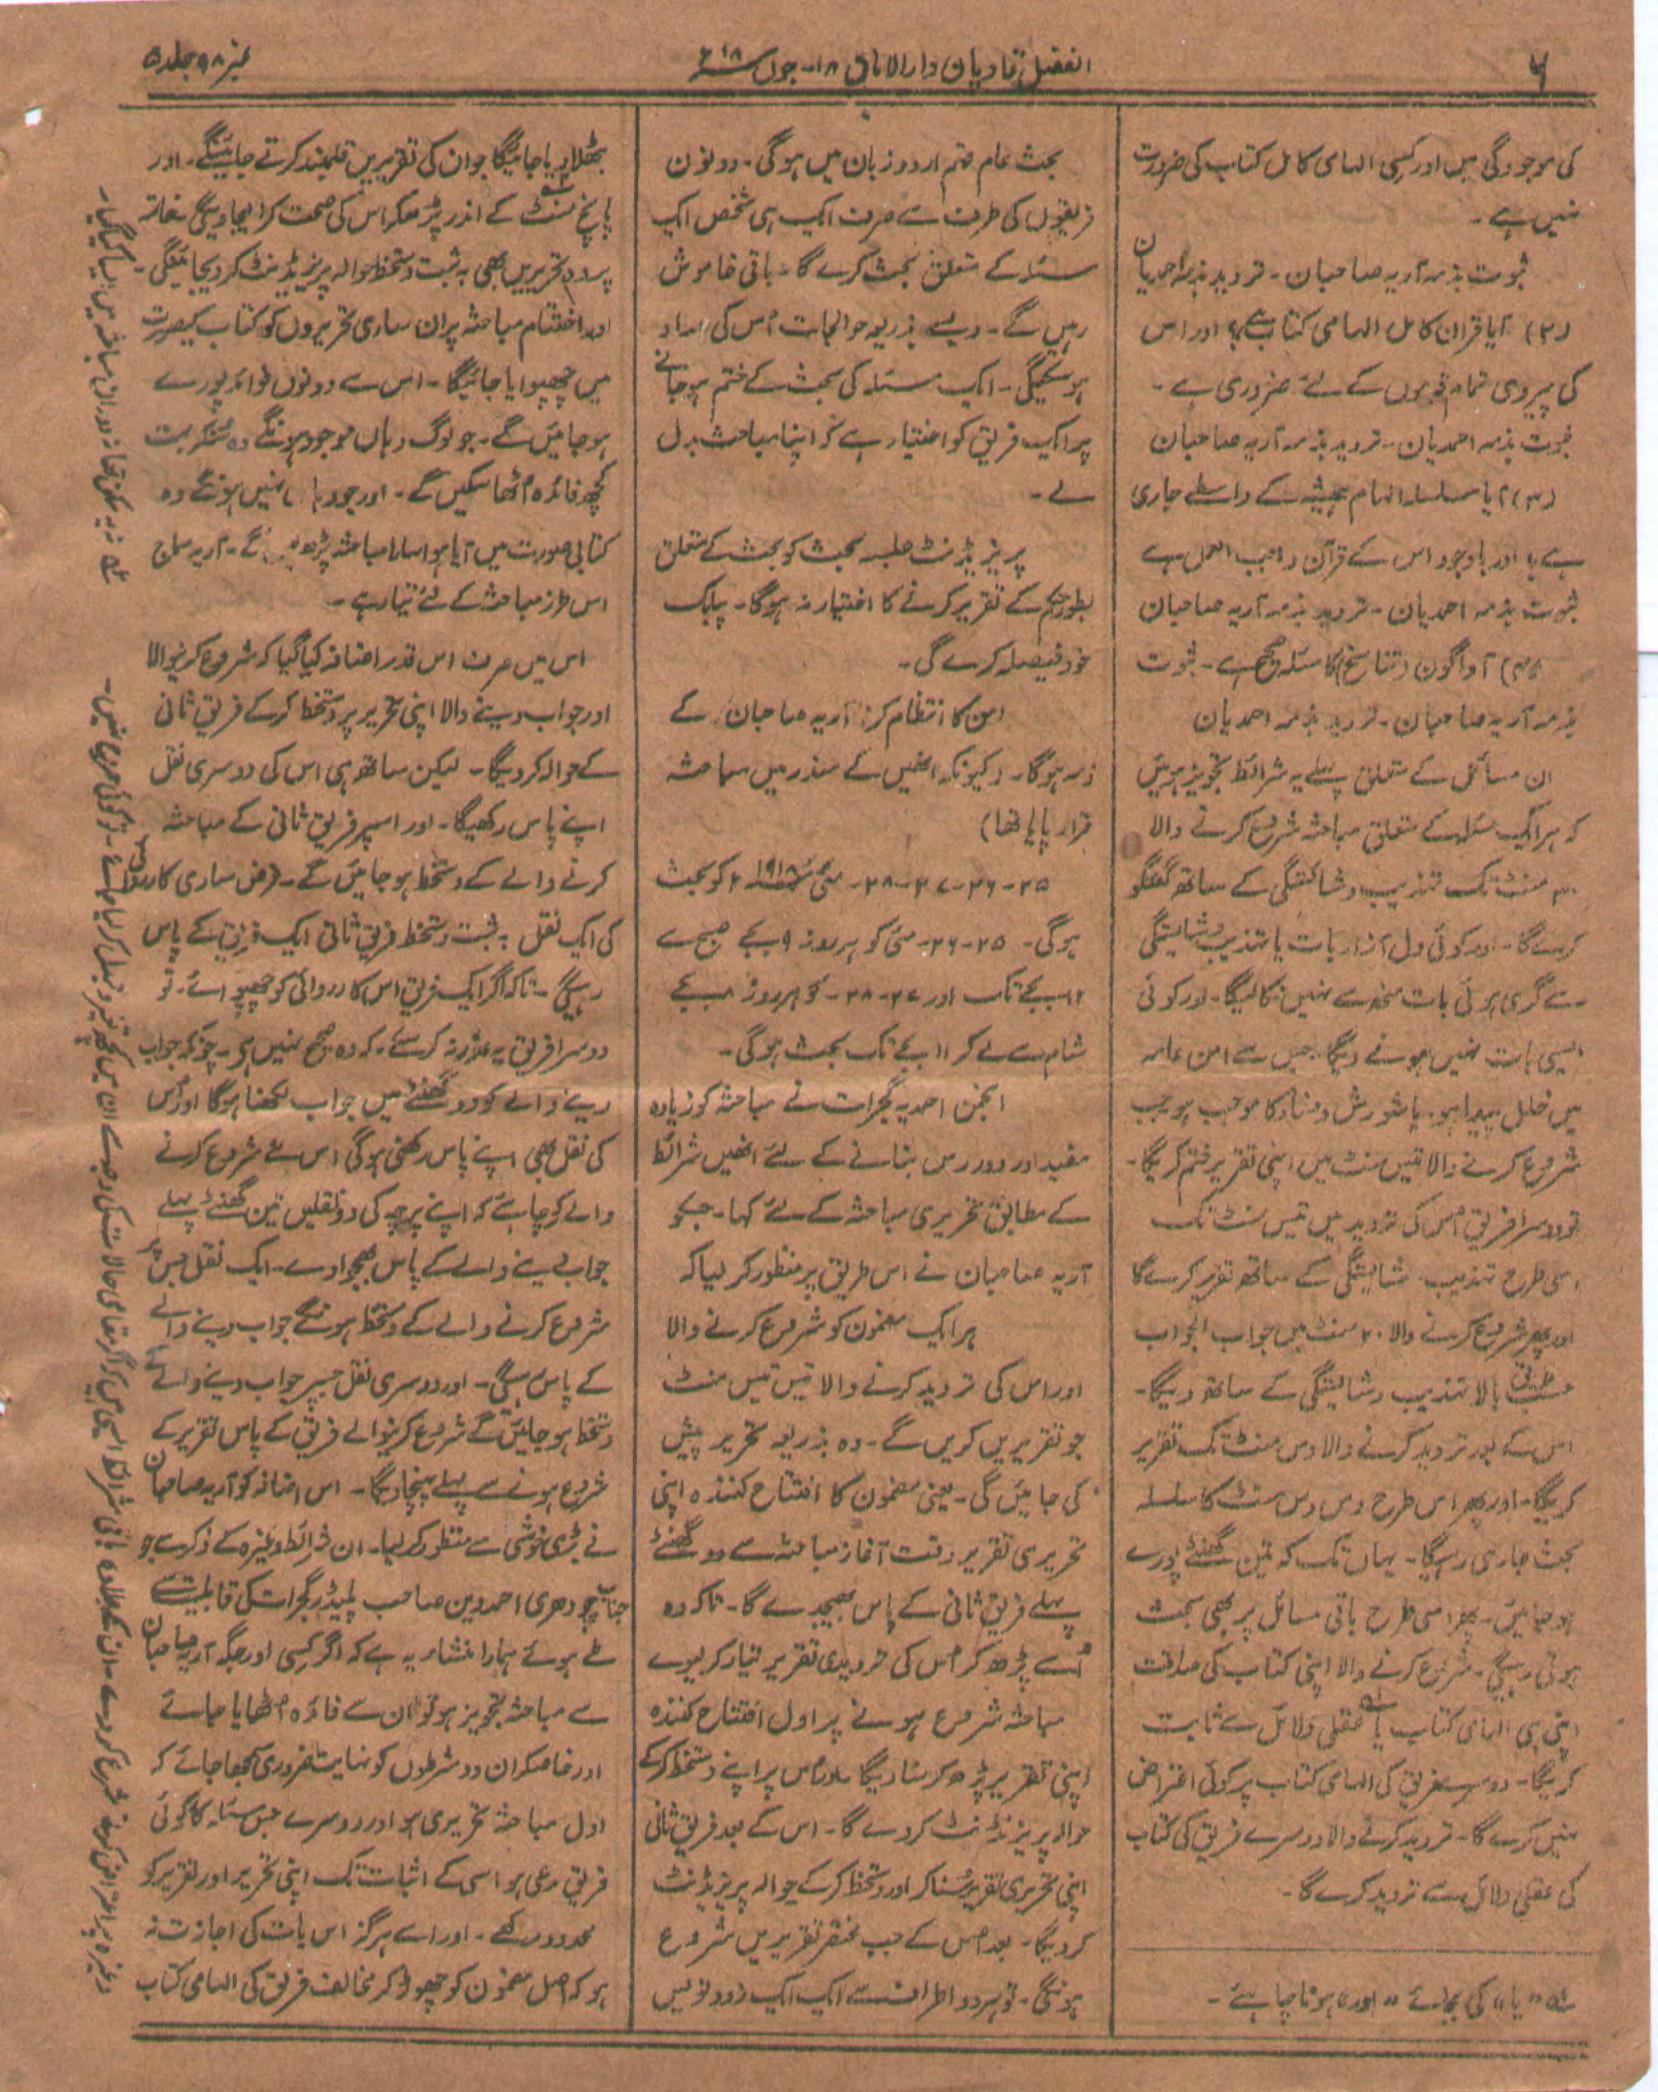 ۶
الفضل قادیان دارالامان ۱۸- جون ۱۸ء
نمبر ۹۸ جلد ۵
کی موجودگی میں اور کسی الہامی کامل کتاب کی ضرورت
نہیں ہے ۔
ثبوت بذمہ آریہ صاحبان ۔ تردید بذمہ احمدیان
(۲) آیا قرآن کامل الہامی کتاب ہے؟ اور اس
کی پیروی تمام قوموں کے لئے ضروری ہے ۔
ثبوت بذمہ احمدیان ۔ تردید بذمہ آریہ صاحبان
(۳) آیا سلسلہ الہام ہمیشہ کے واسطے جاری
ہے؟ اور باوجود اس کے قرآن واجب العمل ہے
ثبوت بذمہ احمدیان ۔ تردید بذمہ آریہ صاحبان
(۴) آواگون (تناسخ) کا مسئلہ صحیح ہے ۔ ثبوت
بذمہ آریہ صاحبان ۔ تردید بذمہ احمدیان
ان مسائل کے متعلق پہلے یہ شرائط تجویز ہوئیں
کہ ہر ایک مسئلہ کے متعلق مباحثہ شروع کرنے والا
۳۰ منٹ تک تہذیب و شائستگی کے ساتھ گفتگو
کرے گا ۔ اور کوئی دل آزار بات یا تہذیب و شایستگی
سے گری ہوئی بات منھ سے نہیں نکالیگا ۔ اور کوئی
ایسی بات نہیں ہونے دیگا جس سے امن عامہ
میں خلل پیدا ہو ۔ یا شورش و فساد کا موجب ہو جب
شروع کرنے والا تیس منٹ میں اپنی تقریر ختم کریگا ۔
تو دوسرا فریق اس کی تردید میں تیس منٹ تک
اسی طرح تہذیب شایستگی کے ساتھ تقریر کرے گا
اور پھر شروع کرنے والا ۲۰ منٹ میں جواب الجواب
طریق بالا تہذیب و شایستگی کے ساتھ دیگا ۔
اس کے بعد تردید کرنے والا دس منٹ تک تقریر
کریگا ۔ اور پھر اس طرح دس دس منٹ کا سلسلہ
بحث جاری رہیگا ۔ یہاں تک کہ تین گھنٹے پورے
ہو جائیں ۔ پھر اسی طرح باقی مسائل پر بھی بحث
ہوتی رہیگی ۔ شروع کرنے والا اپنی کتاب کی صداقت
اپنی ہی الہامی کتاب یا عقلی دلائل سے ثابت
کریگا ۔ دوسرے فریق کی الہامی کتاب پر کوئی اعتراض
نہیں کرے گا ۔ تردید کرنے والا دوسرے فریق کی کتاب
کی عقلی دلائل سے تردید کرے گا ۔
"یا" کی بجائے "اور" ہونا چاہئے ۔
بحث عام فہم اردو زبان میں ہو گی ۔ دونوں
فریقوں کی طرف سے صرف ایک ہی شخص ایک
مسئلہ کے متعلق بحث کرے گا ۔ باقی خاموش
رہیں گے ۔ ویسے بذریعہ حوالجات اس کی امداد
ہو سکیگی ۔ ایک مسئلہ کی بحث کے ختم ہو جانے
پر ایک فریق کو اختیار ہے کہ اپنا مباحث بدل
لے ۔
پریزیڈنٹ جلسہ بحث کو بحث کے متعلق
بطور حکم کے تقریر کرنے کا اختیار نہ ہوگا ۔ پبلک
خود فیصلہ کرے گی ۔
امن کا انتظام کرنا آریہ صاحبان کے
ذمہ ہو گا ۔ (کیونکہ انھیں کے مندر میں مباحثہ
قرار پایا تھا)
۲۵-۲۶-۲۷-۲۸- مئی ۱۹۱۸ء کو بحث
ہوگی ۔ ۲۵-۲۶- مئی کو ہر روز ۹ بجے صبح سے
۱۲ بجے تک اور ۲۷-۲۸- کو ہر روز ۸ بجے
شام سے لے کر ۱۱ بجے تک بحث ہوگی ۔
انجمن احمدیہ گجرات نے مباحثہ کو زیادہ
مفید اور دور رس بنانے کے لئے انھیں شرائط
کے مطابق تحریری مباحثہ کے لئے کہا ۔ جسکو
آریہ صاحبان نے اس طریق پر منظور کر لیا کہ
ہر ایک مضمون کو شروع کرنے والا
اور اس کی تردید کرنے والا تیس تیس منٹ
جو تقریریں کریں گے ۔ وہ بذریعہ تحریر پیش
کی جائیں گی ۔ یعنی مضمون کا افتتاح کنندہ اپنی
تحریری تقریر وقت آغاز مباحثہ سے دو گھنٹے
پہلے فریق ثانی کے پاس بھیجدے گا ۔ تاکہ وہ
اُسے پڑھ کر اس کی تردیدی تقریر تیار کر لیوے
مباحثہ شروع ہونے پر اول افتتاح کنندہ
اپنی تقریر پڑھ کر سنا دیگا اور اس پر اپنے دستخط کرکے
حوالہ پریزیڈنٹ کر دے گا ۔ اس کے بعد فریق ثانی
اپنی تحریری تقریر سُنا کر اور دستخط کرکے حوالہ پریزیڈنٹ
کر دیگا ۔ بعد اس کے جب مختصر تقریریں شروع
ہونگی ۔ تو ہر دو اطراف سے ایک ایک زود نویس
بٹھلا دیا جائیگا جو ان کی تقریریں قلمبند کرتے جائینگے ۔ اور
پانچ منٹ کے اندر پڑھکر اس کی صحت کرا لیجاویگی خاتمہ
پر وہ تحریریں بھی بہ ثبت دستخط حوالہ پریزیڈنٹ کر دیجائینگی ۔
اور اختتام مباحثہ پر ان ساری تحریروں کو کتاب کیصورت
میں چھپوایا جائیگا ۔ اس سے دونوں فوائد پورے
ہو جائیں گے ۔ جو لوگ وہاں موجود ہونگے وہ سُنکر بہت
کچھ فائدہ اُٹھا سکیں گے ۔ اور جو وہاں نہیں ہونگے وہ
کتابی صورت میں آیا ہوا سارا مباحثہ پڑھ لیں گے ۔ آریہ سماج
اس طرز مباحثہ کے لئے تیار ہے ۔
اس میں صرف اس قدر اضافہ کیا گیا کہ شروع کرنیوالا
اور جواب دینے والا اپنی تحریر پر دستخط کرکے فریق ثانی
کے حوالہ کر دیگا ۔ لیکن ساتھ ہی اس کی دوسری نقل
اپنے پاس رکھیگا ۔ اور اسپر فریق ثانی کے مباحثہ
کرنے والے کے دستخط ہو جائیں گے ۔ غرض ساری کارروائی
کی ایک نقل بہ ثبت دستخط فریق ثانی ایک فریق کے پاس
رہیگی ۔ تاکہ اگر ایک فریق اس کارروائی کو چھپوائے ۔ تو
دوسرا فریق یہ عذر نہ کرسکے ۔ کہ وہ صحیح نہیں ہے ۔ چونکہ جواب
دینے والے کو دو گھنٹے میں جواب لکھنا ہوگا اور اُس
کی نقل بھی اپنے پاس رکھنی ہوگی اس لئے شروع کرنے
والے کو چاہئے کہ اپنے پرچہ کی دو نقلیں تین گھنٹے پہلے
جواب دینے والے کے پاس بھجوا دے ۔ ایک نقل جس پر
شروع کرنے والے کے دستخط ہونگے جواب دینے والے
کے پاس رہیگی ۔ اور دوسری نقل جسپر جواب دینے والے کے
دستخط ہو جائیں گے شروع کرنیوالے فریق کے پاس تقریر کے
شروع ہونے سے پہلے پہنچا دیگا ۔ اس اضافہ کو آریہ صاحبان
نے بڑی خوشی سے منظور کر لیا ۔ ان شرائط وغیرہ کے ذکر سے جو
جناب چودھری احمد دین صاحب پلیڈر گجرات کی قابلیت سے
طے ہوئے ہمارا منشاء یہ ہے کہ اگر کسی اور جگہ آریہ صاحبان
سے مباحثہ تجویز ہو تو ان سے فائدہ اُٹھایا جائے
اور خاصکر ان دو شرطوں کو نہایت ضروری سمجھا جائے کہ
اول مباحثہ تحریری ہو اور دوسرے جس مسئلہ کا کوئی
فریق مدعی ہو اسی کے اثبات تک اپنی تحریر اور تقریر کو
محدود رکھے ۔ اور اسے ہرگز اس بات کی اجازت نہ
ہو کہ اصل مضمون کو چھوڑ کر مخالف فریق کی الہامی کتاب
وغیرہ پر اعتراض کرنے شروع کر دے ۔ ان کے علاوہ باقی شرائط ایسی ہیں کہ اگر مقامی حالات کی وجہ سے ان میں کچھ تغیر و تبدل کر لیا جائے ۔ تو کوئی حرج نہیں ۔